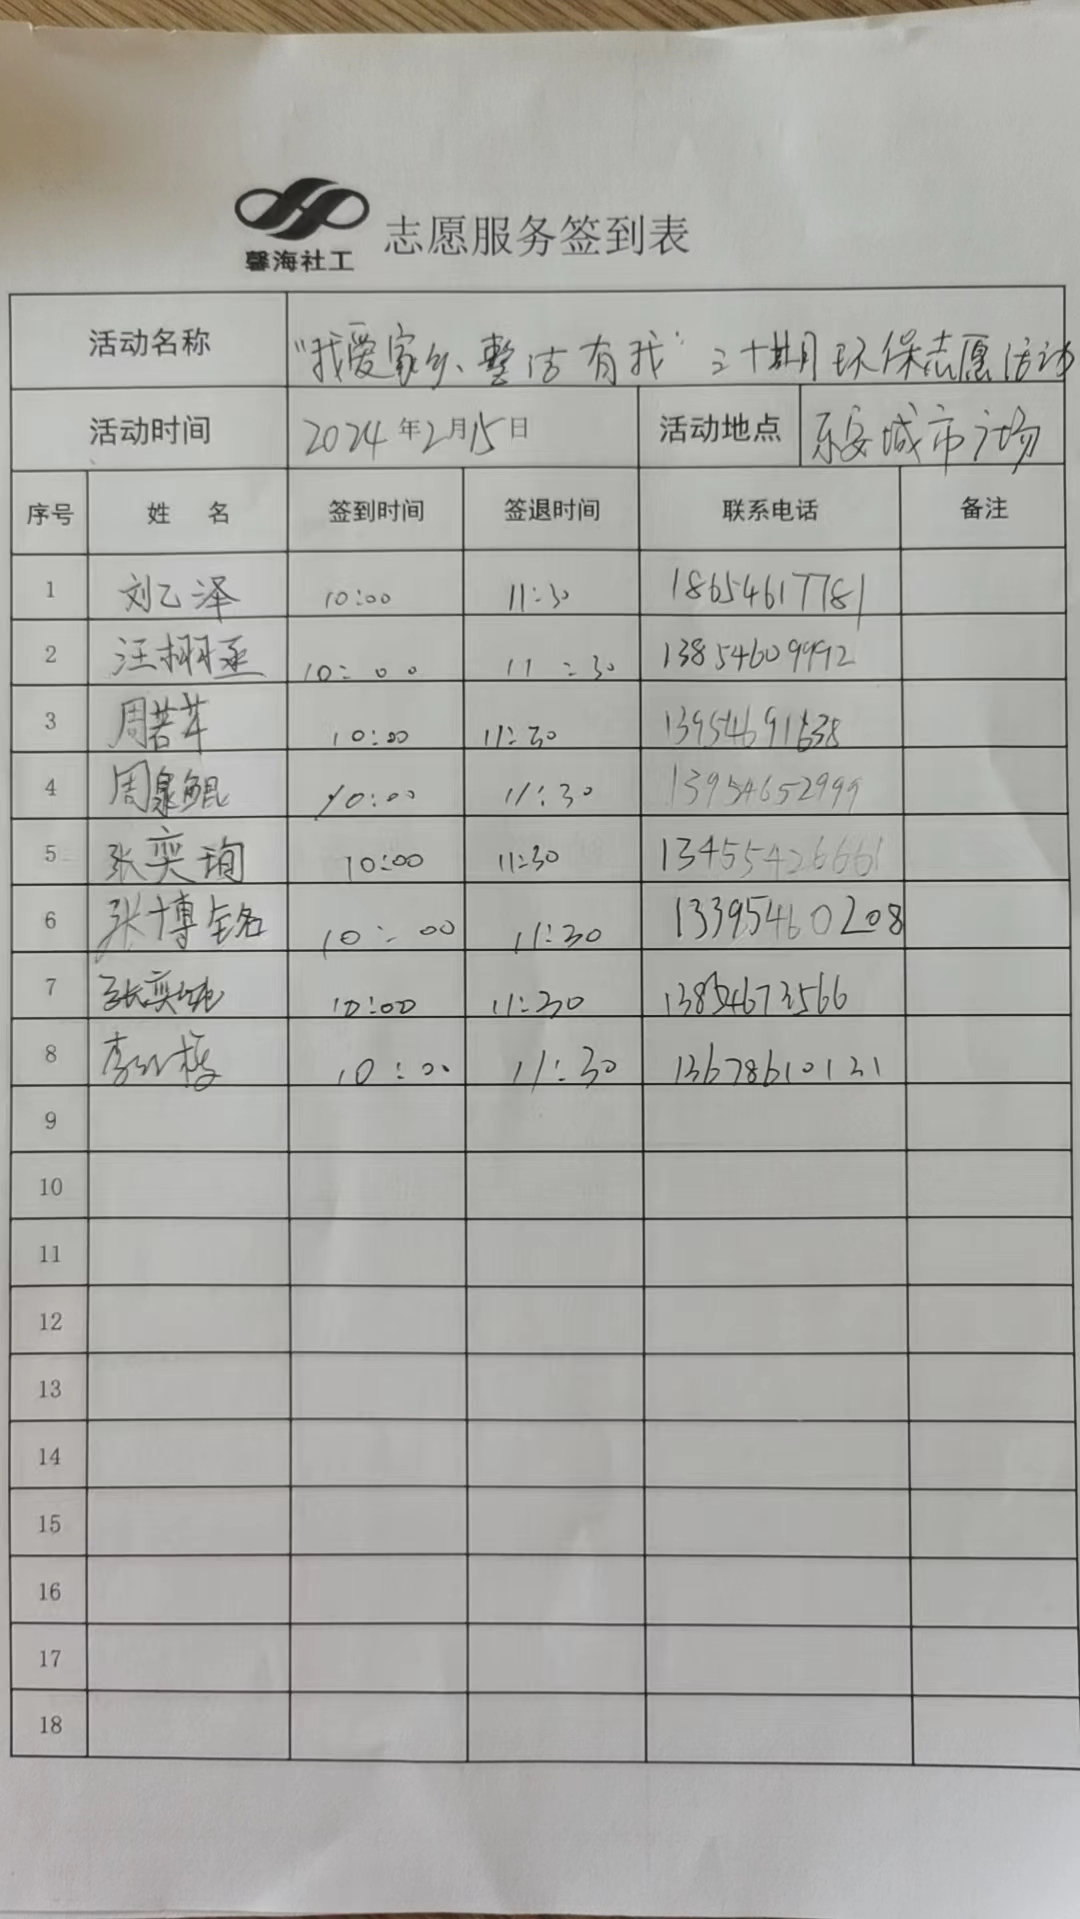 馨海社工
志愿服务签到表
活动名称 "我爱家乡、整洁有我" 三十期 环保志愿活动
活动时间 2024年2月15日 活动地点 乐安城市广场
序号 姓 名 签到时间 签退时间 联系电话 备注
1 刘乙泽 10:00 11:30 18654617781
2 汪栩丞 10:00 11:30 13854609992
3 周若芊 10:00 11:30 13954691638
4 周 鲲 10:00 11:30 13954652999
5 张奕珣 10:00 11:30 13455426661
6 张博铭 10:00 11:30 13395460208
7 张奕 10:00 11:30 13854673566
8 李 10:00 11:30 13678610131
9
10
11
12
13
14
15
16
17
18